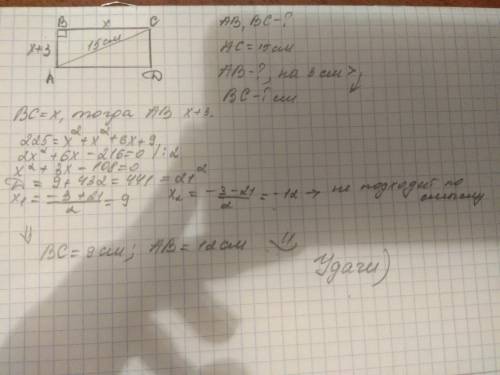 B x C
x+3 15см
A D
AB, BC-?
AC=15см
AB-?, на 3 см >
BC-? см
BC=x, тогда AB x+3.
225=x²+x²+6x+9
2x²+6x-216=0 /:2
x²+3x-108=0
D = 9+432=441=21²
x₁= -3+21/2 = 9 x₂= -3-21/2 = -12 → не подходит по
смыслу
⇓
BC=9см; AB=12см
Удачи)